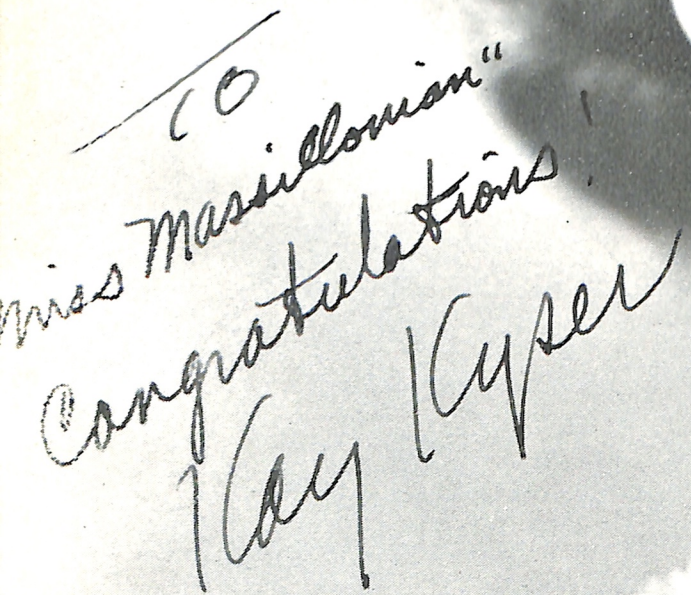 To
Miss Massillonian"
Congratulations!
Kay Kyser